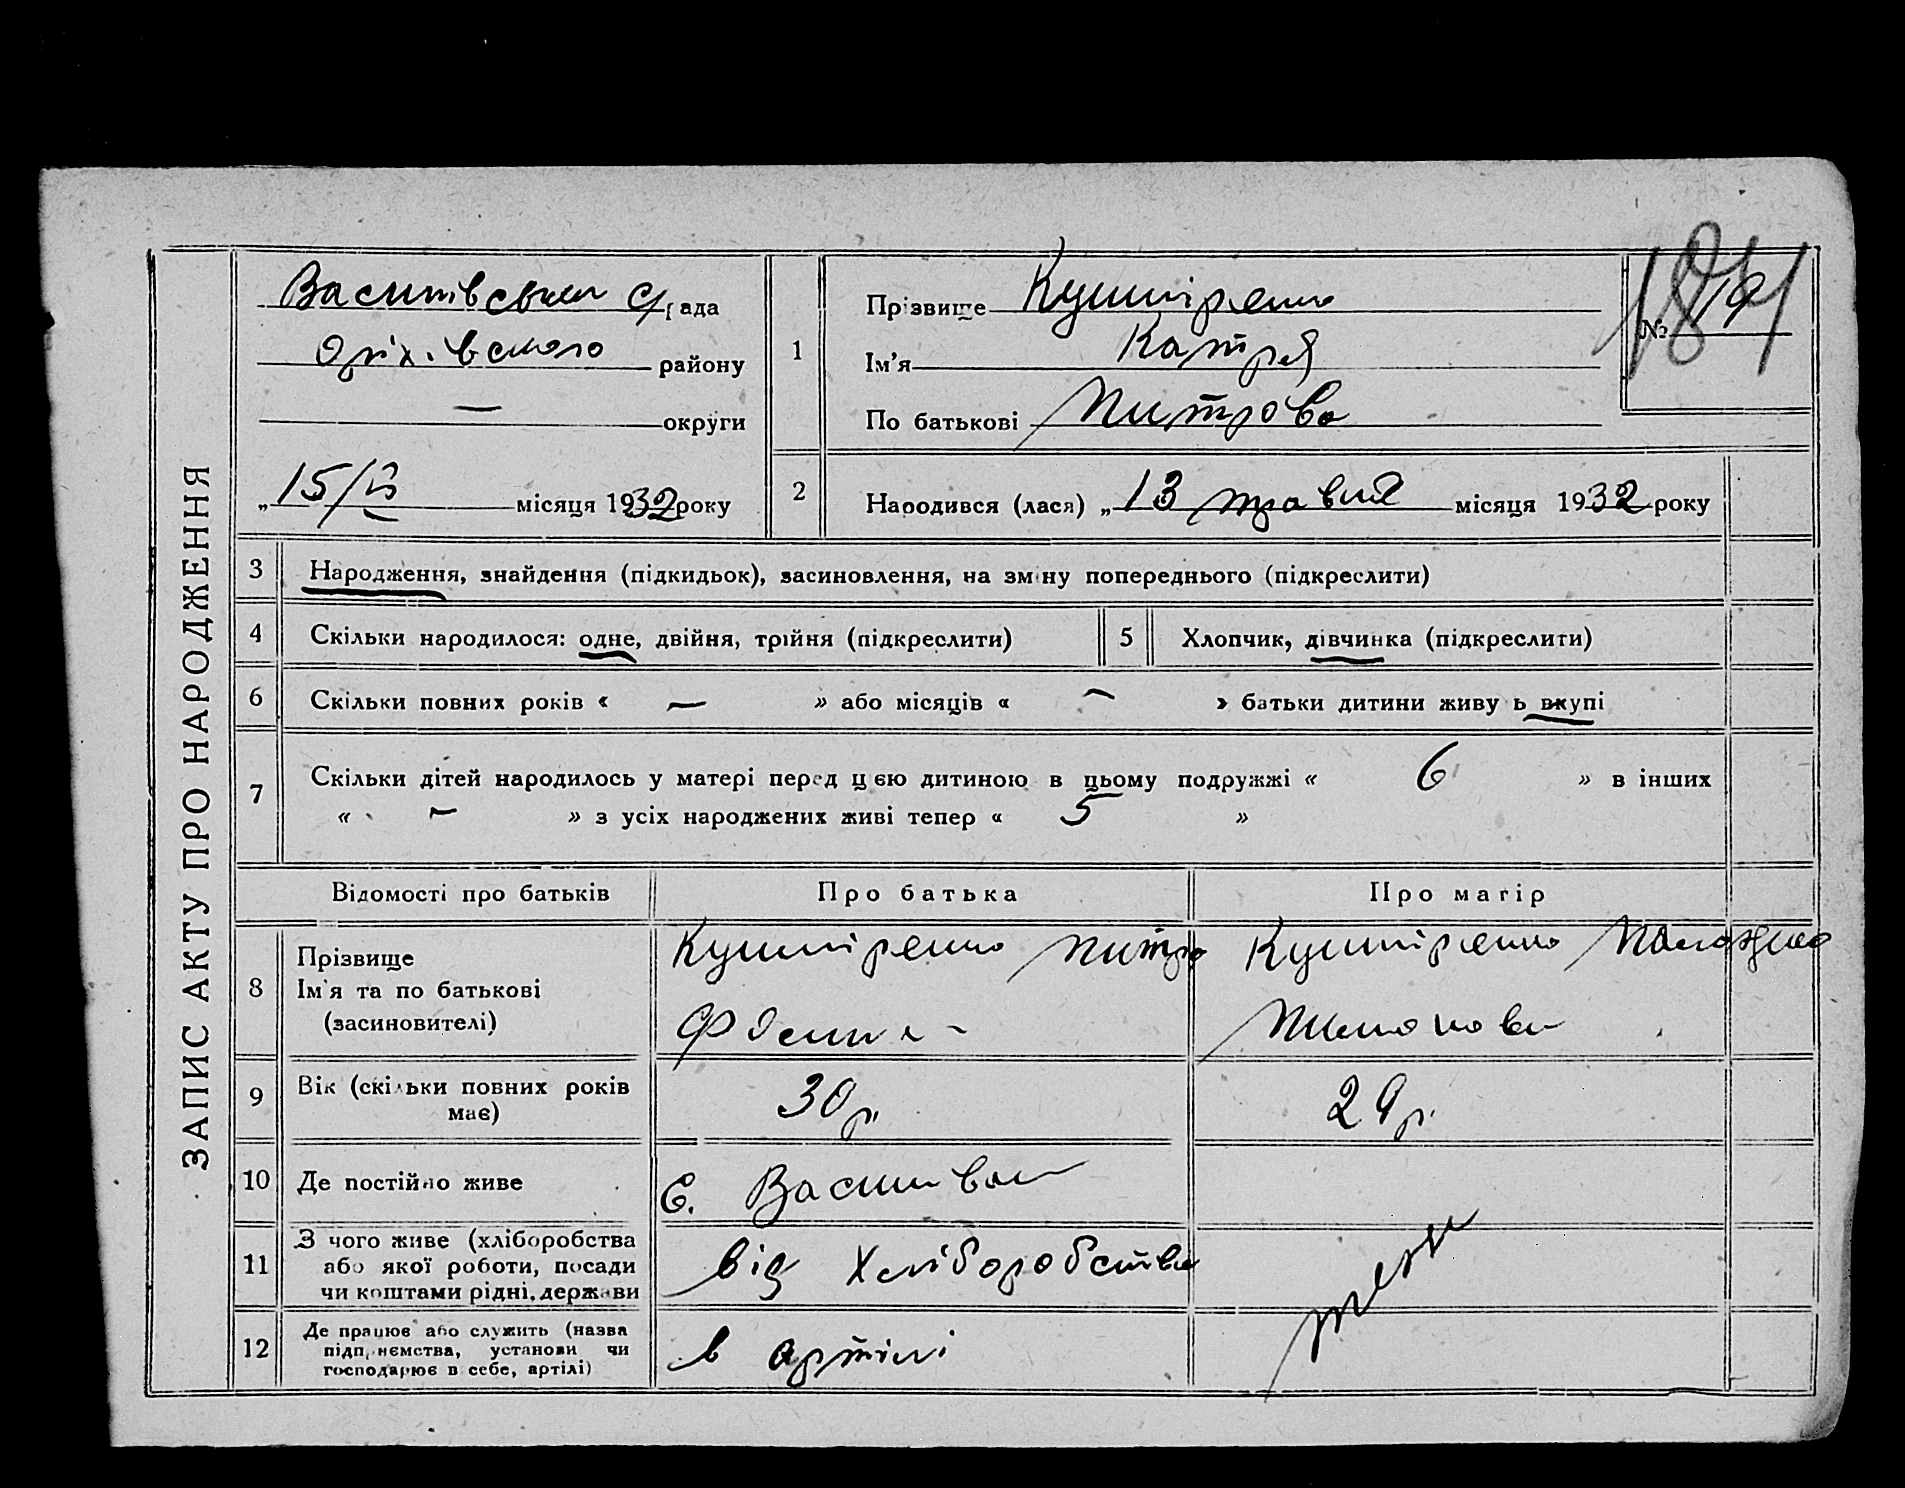 ЗАПИС АКТУ ПРО НАРОДЖЕННЯ
Василівська с/рада
Оріхівського району
— округи
„15/V місяця 1932 року
1
Прізвище Кушніренко
Ім’я Катря
По батькові Питрова
№ 19
184
2
Народився (лася) „13 травня місяця 1932 року
3 Народження, знайдення (підкидьок), засиновлення, на зміну попереднього (підкреслити)
4 Скільки народилося: одне, двійня, трійня (підкреслити)
5 Хлопчик, дівчинка (підкреслити)
6 Скільки повних років « — » або місяців « — » батьки дитини живуть вкупі
7 Скільки дітей народилось у матері перед цією дитиною в цьому подружжі « 6 » в інших
« — » з усіх народжених живі тепер « 5 »
Відомості про батьків
Про батька
Про матір
8
Прізвище
Ім’я та по батькові
(засиновителі)
Кушніренко Питро
Кушніренко
9
Вік (скільки повних років
має)
30 р.
29 р.
10 Де постійно живе
с. Василівка
11
З чого живе (хліборобства
або якої роботи, посади
чи коштами рідні, держави
від Хліборобства
12
Де працює або служить (назва
підприємства, установи чи
господарює в себе, артілі)
в артілі
теж